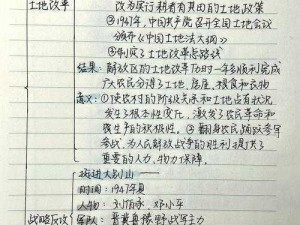 土地改革
改为实行耕者有其田的土地政策
②1947年,中国共产党召开全国土地会议
颁布《中国土地法大纲》
③制定了土地改革总路线
结果:解放区的土地改革历时一年多顺利完成
广大农民分得了土地、房屋、粮食和衣物
意义:①使农村的阶级关系和土地占有状况
发生了根本性变化,激发了农民革命和
生产的积极性。②翻身农民踊跃参军
参战,为人民解放战争的胜利提供了
重要的人力、物力保障。
挺进大别山
时间:1947年夏
人物:刘伯承、邓小平
战略反攻
军队:晋冀鲁豫野战军主力